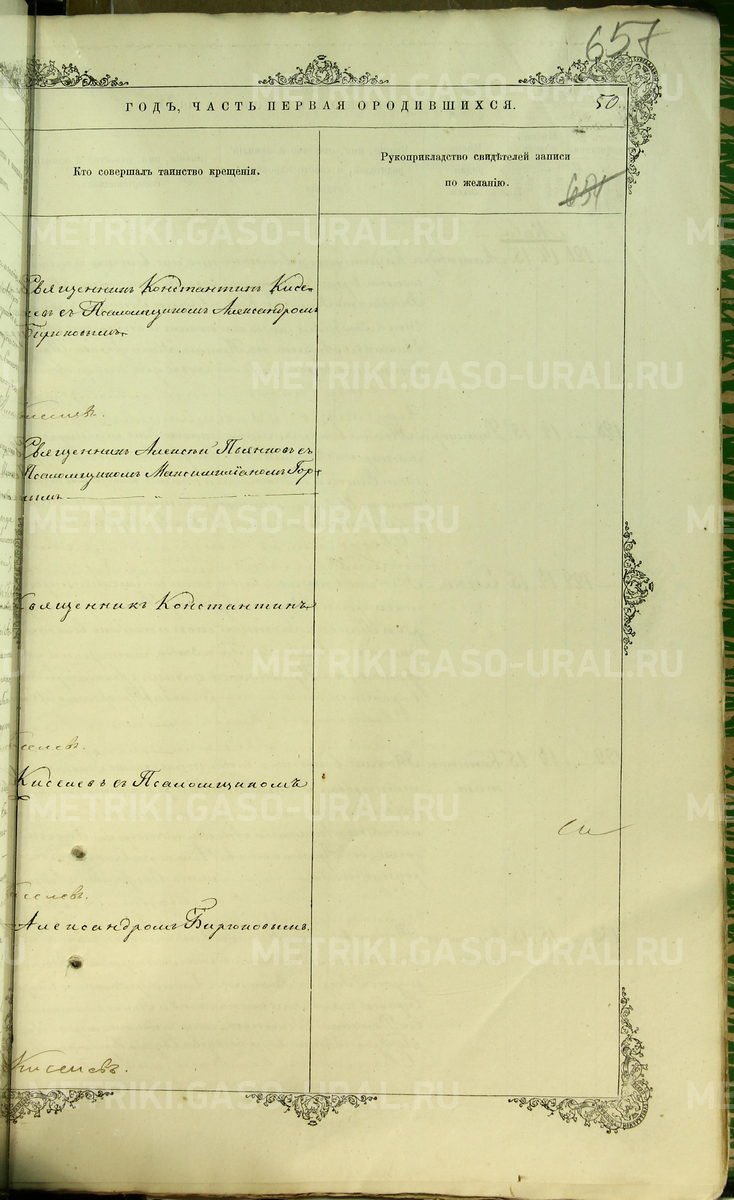 657
ГОДЪ, ЧАСТЬ ПЕРВАЯ О РОДИВШИХСЯ.
50
Кто совершалъ таинство крещенія.
Рукоприкладство свидѣтелей записи
по желанію.
Священникъ Константинъ Кисе-
левъ съ Псаломщикомъ Александромъ
Бирюковымъ
Киселевъ.
Священникъ Алексѣй Пьянковъ съ
Псаломщикомъ Максимиліаномъ Гор-
нымъ
Священникъ Константинъ
Киселевъ.
Киселевъ съ Псаломщикомъ
Киселевъ.
Александромъ Бирюковымъ.
Киселевъ.
METRIKI.GASO-URAL.RU